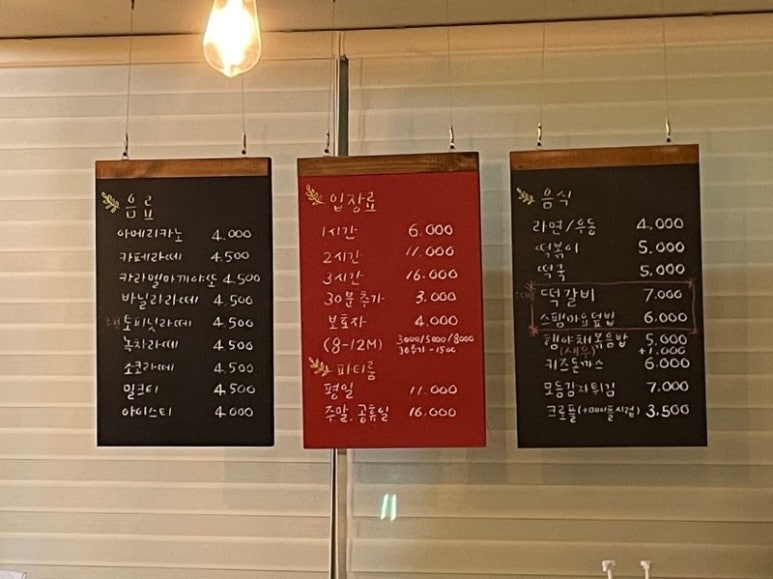 음료
아메리카노 4.000
카페라떼 4.500
카라멜마끼아또 4.500
바닐라라떼 4.500
토피넛라떼 4.500
녹차라떼 4.500
쵸코라떼 4.500
밀크티 4.500
아이스티 4.000
입장료
1시간 6.000
2시간 11.000
3시간 16.000
30분추가 3.000
보호자 4.000
(8-12M) 3000/5000/8000
30추가-1500
파티룸
평일 11.000
주말.공휴일 16.000
음식
라면/우동 4.000
떡볶이 5.000
떡국 5.000
떡갈비 7.000
스팸마요덮밥 6.000
햄야채볶음밥 5.000
(새우) +1.000
키즈돈까스 6.000
모듬감자튀김 7.000
크로플(+메이플시럽) 3.500